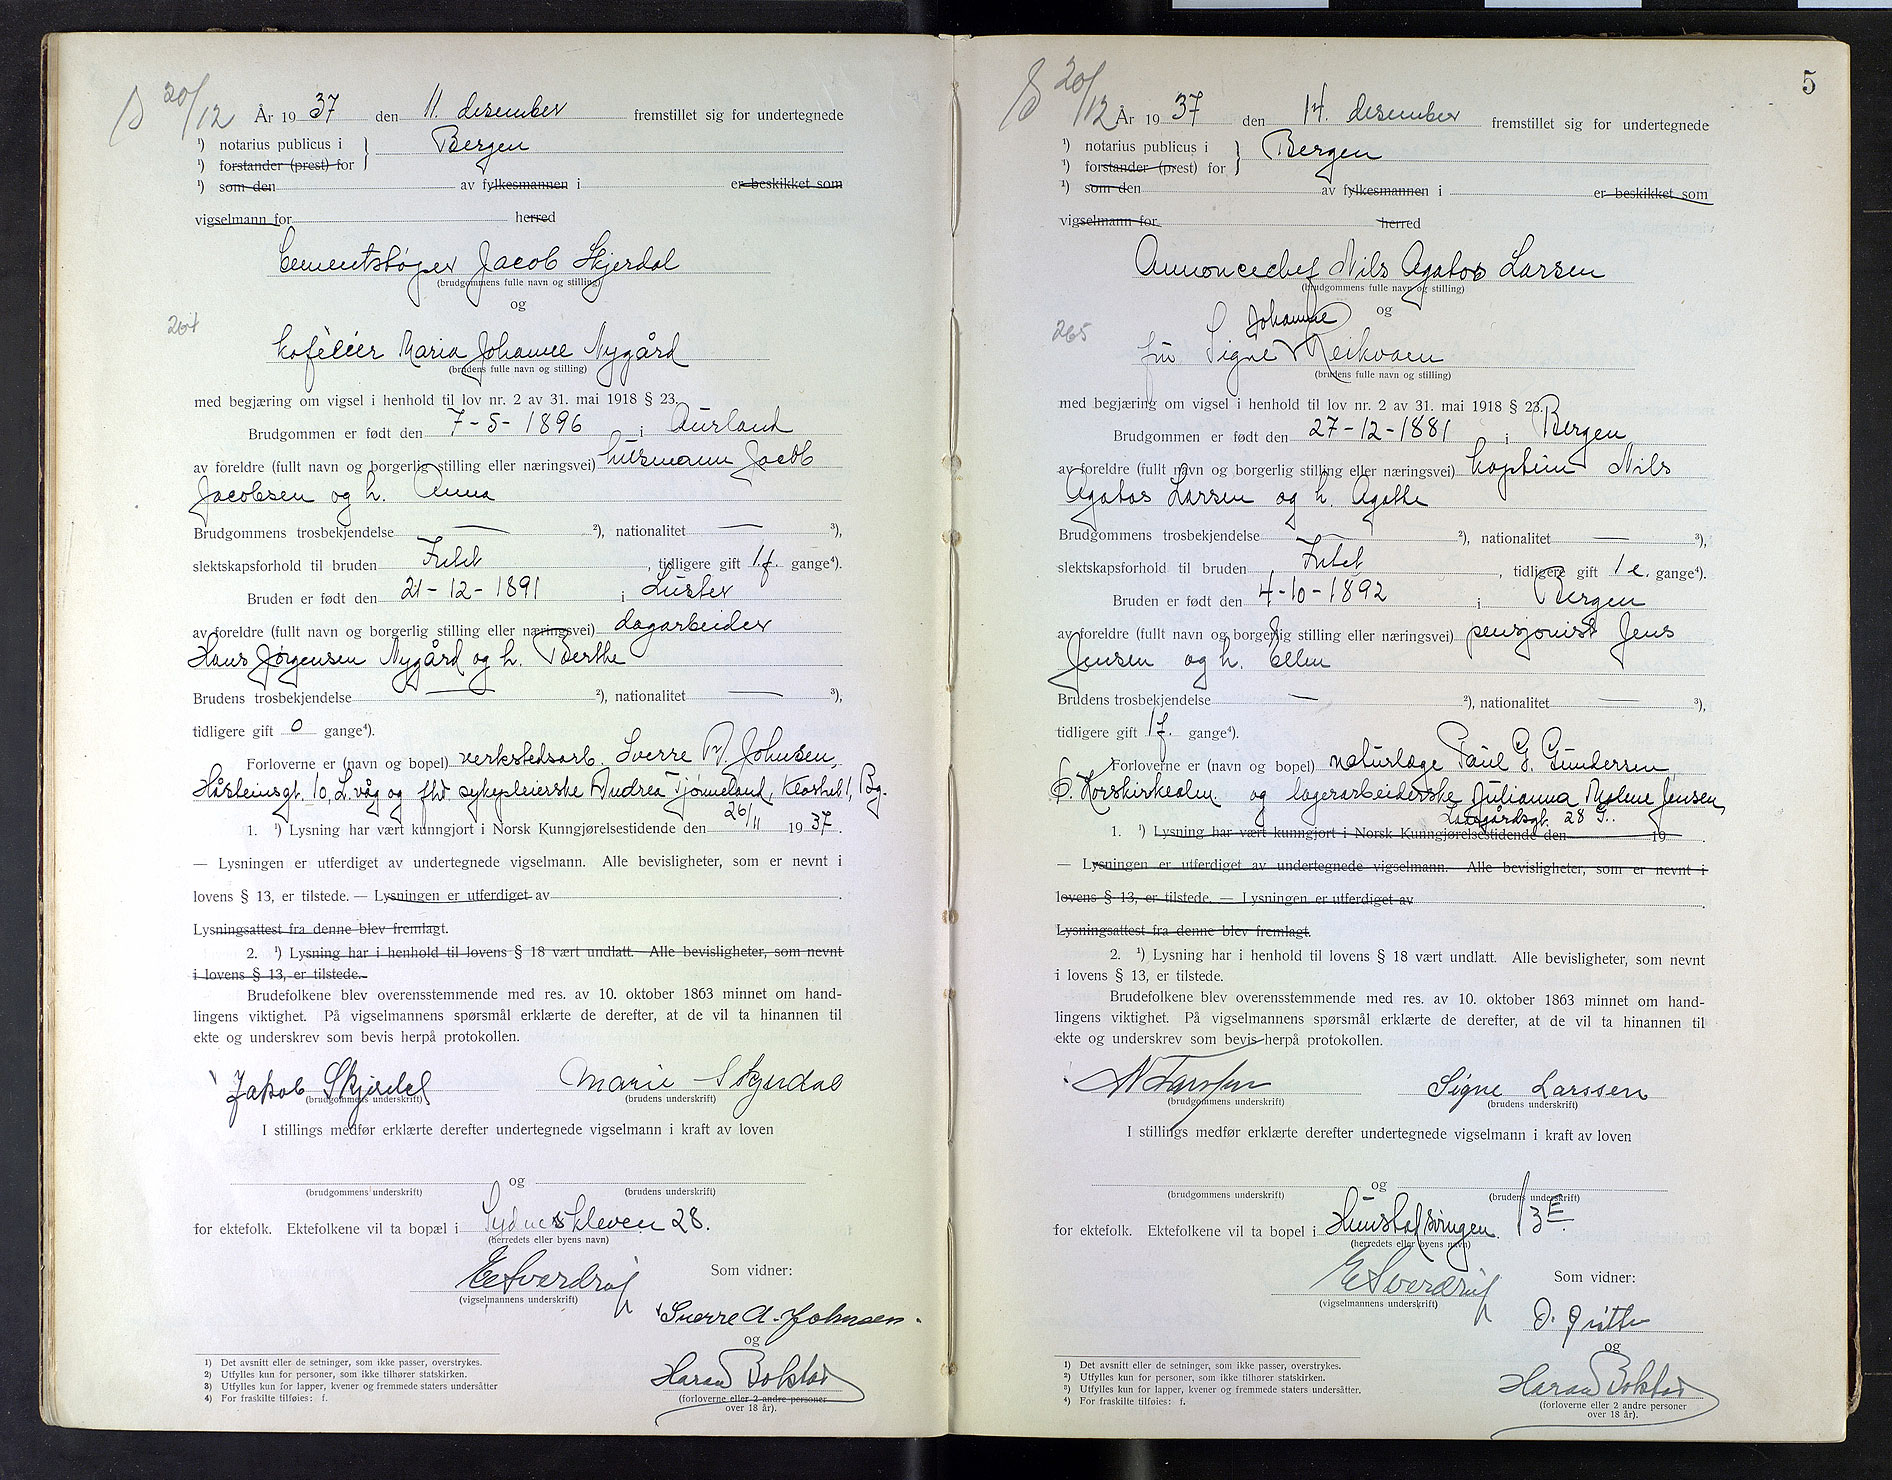 20/12 År 1937 den 11. desember fremstillet sig for undertegnede
¹) notarius publicus i } Bergen
¹) forstander (prest) for
¹) som den av fylkesmannen i er beskikket som
vigselmann for herred
Cementstøper Jacob Skjerdal
(brudgommens fulle navn og stilling)
og
264
Maria Johanne Nygård
(brudens fulle navn og stilling)
med begjæring om vigsel i henhold til lov nr. 2 av 31. mai 1918 § 23.
Brudgommen er født den 7-5-1896 i Aurland
av foreldre (fullt navn og borgerlig stilling eller næringsvei) husmann Jacob
Jacobsen og h. Anna
Brudgommens trosbekjendelse — ²), nationalitet — ³),
slektskapsforhold til bruden Intet, tidligere gift 1 f. gange⁴).
Bruden er født den 21-12-1891 i Luster
av foreldre (fullt navn og borgerlig stilling eller næringsvei) dagarbeider
Hans Jørgensen Nygård og h. Berthe
Brudens trosbekjendelse — ²), nationalitet — ³),
tidligere gift 0 gange⁴).
Forloverne er (navn og bopel) verkstedsarb. Sverre A. Johnsen,
10, L.våg og fhv. sykepleierske Andrea Tjønneland, Bg.
1. ¹) Lysning har vært kunngjort i Norsk Kunngjørelsestidende den 26/11 1937.
— Lysningen er utferdiget av undertegnede vigselmann. Alle bevisligheter, som er nevnt i
lovens § 13, er tilstede. — Lysningen er utferdiget av .
Lysningsattest fra denne blev fremlagt.
2. ¹) Lysning har i henhold til lovens § 18 vært undlatt. Alle bevisligheter, som nevnt
i lovens § 13, er tilstede.
Brudefolkene blev overensstemmende med res. av 10. oktober 1863 minnet om hand-
lingens viktighet. På vigselmannens spørsmål erklærte de derefter, at de vil ta hinannen til
ekte og underskrev som bevis herpå protokollen.
Jakob Skjerdal Marie Skjerdal
(brudgommens underskrift) (brudens underskrift)
I stillings medfør erklærte derefter undertegnede vigselmann i kraft av loven
og
(brudgommens underskrift) (brudens underskrift)
for ektefolk. Ektefolkene vil ta bopæl i Sydneskleven 28.
(herredets eller byens navn)
E Sverdrup Som vidner:
(vigselmannens underskrift)
Sverre A. Johnsen.
og
Bokstad
(forloverne eller 2 andre personer
over 18 år).
1) Det avsnitt eller de setninger, som ikke passer, overstrykes.
2) Utfylles kun for personer, som ikke tilhører statskirken.
3) Utfylles kun for lapper, kvener og fremmede staters undersåtter
4) For fraskilte tilføies: f.
5
20/12 År 1937 den 14. desember fremstillet sig for undertegnede
¹) notarius publicus i } Bergen
¹) forstander (prest) for
¹) som den av fylkesmannen i er beskikket som
vigselmann for herred
Annoncechef Nils Agatos Larsen
(brudgommens fulle navn og stilling)
og
265
fru Signe Johanne Reikvam
(brudens fulle navn og stilling)
med begjæring om vigsel i henhold til lov nr. 2 av 31. mai 1918 § 23.
Brudgommen er født den 27-12-1881 i Bergen
av foreldre (fullt navn og borgerlig stilling eller næringsvei) kaptein Nils
Agatos Larsen og h. Agathe
Brudgommens trosbekjendelse — ²), nationalitet — ³),
slektskapsforhold til bruden Intet, tidligere gift 1 e. gange⁴).
Bruden er født den 4-10-1892 i Bergen
av foreldre (fullt navn og borgerlig stilling eller næringsvei) pensjonist Jens
Jensen og h. Ellen
Brudens trosbekjendelse — ²), nationalitet — ³),
tidligere gift 1 f. gange⁴).
Forloverne er (navn og bopel) naturlæge Paul G. Gundersen
6. Korskirkealm. og lagerarbeiderske Julianna Jensen,
Ladegårdsgt. 28
1. ¹) Lysning har vært kunngjort i Norsk Kunngjørelsestidende den 19 .
— Lysningen er utferdiget av undertegnede vigselmann. Alle bevisligheter, som er nevnt i
lovens § 13, er tilstede. — Lysningen er utferdiget av .
Lysningsattest fra denne blev fremlagt.
2. ¹) Lysning har i henhold til lovens § 18 vært undlatt. Alle bevisligheter, som nevnt
i lovens § 13, er tilstede.
Brudefolkene blev overensstemmende med res. av 10. oktober 1863 minnet om hand-
lingens viktighet. På vigselmannens spørsmål erklærte de derefter, at de vil ta hinannen til
ekte og underskrev som bevis herpå protokollen.
N Larssen Signe Larssen
(brudgommens underskrift) (brudens underskrift)
I stillings medfør erklærte derefter undertegnede vigselmann i kraft av loven
og
(brudgommens underskrift) (brudens underskrift)
for ektefolk. Ektefolkene vil ta bopel i 13 E.
(herredets eller byens navn)
E Sverdrup Som vidner:
(vigselmannens underskrift)
og
Bokstad
(forloverne eller 2 andre personer
over 18 år).
1) Det avsnitt eller de setninger, som ikke passer, overstrykes.
2) Utfylles kun for personer, som ikke tilhører statskirken.
3) Utfylles kun for lapper, kvener og fremmede staters undersåtter.
4) For fraskilte tilføies: f.